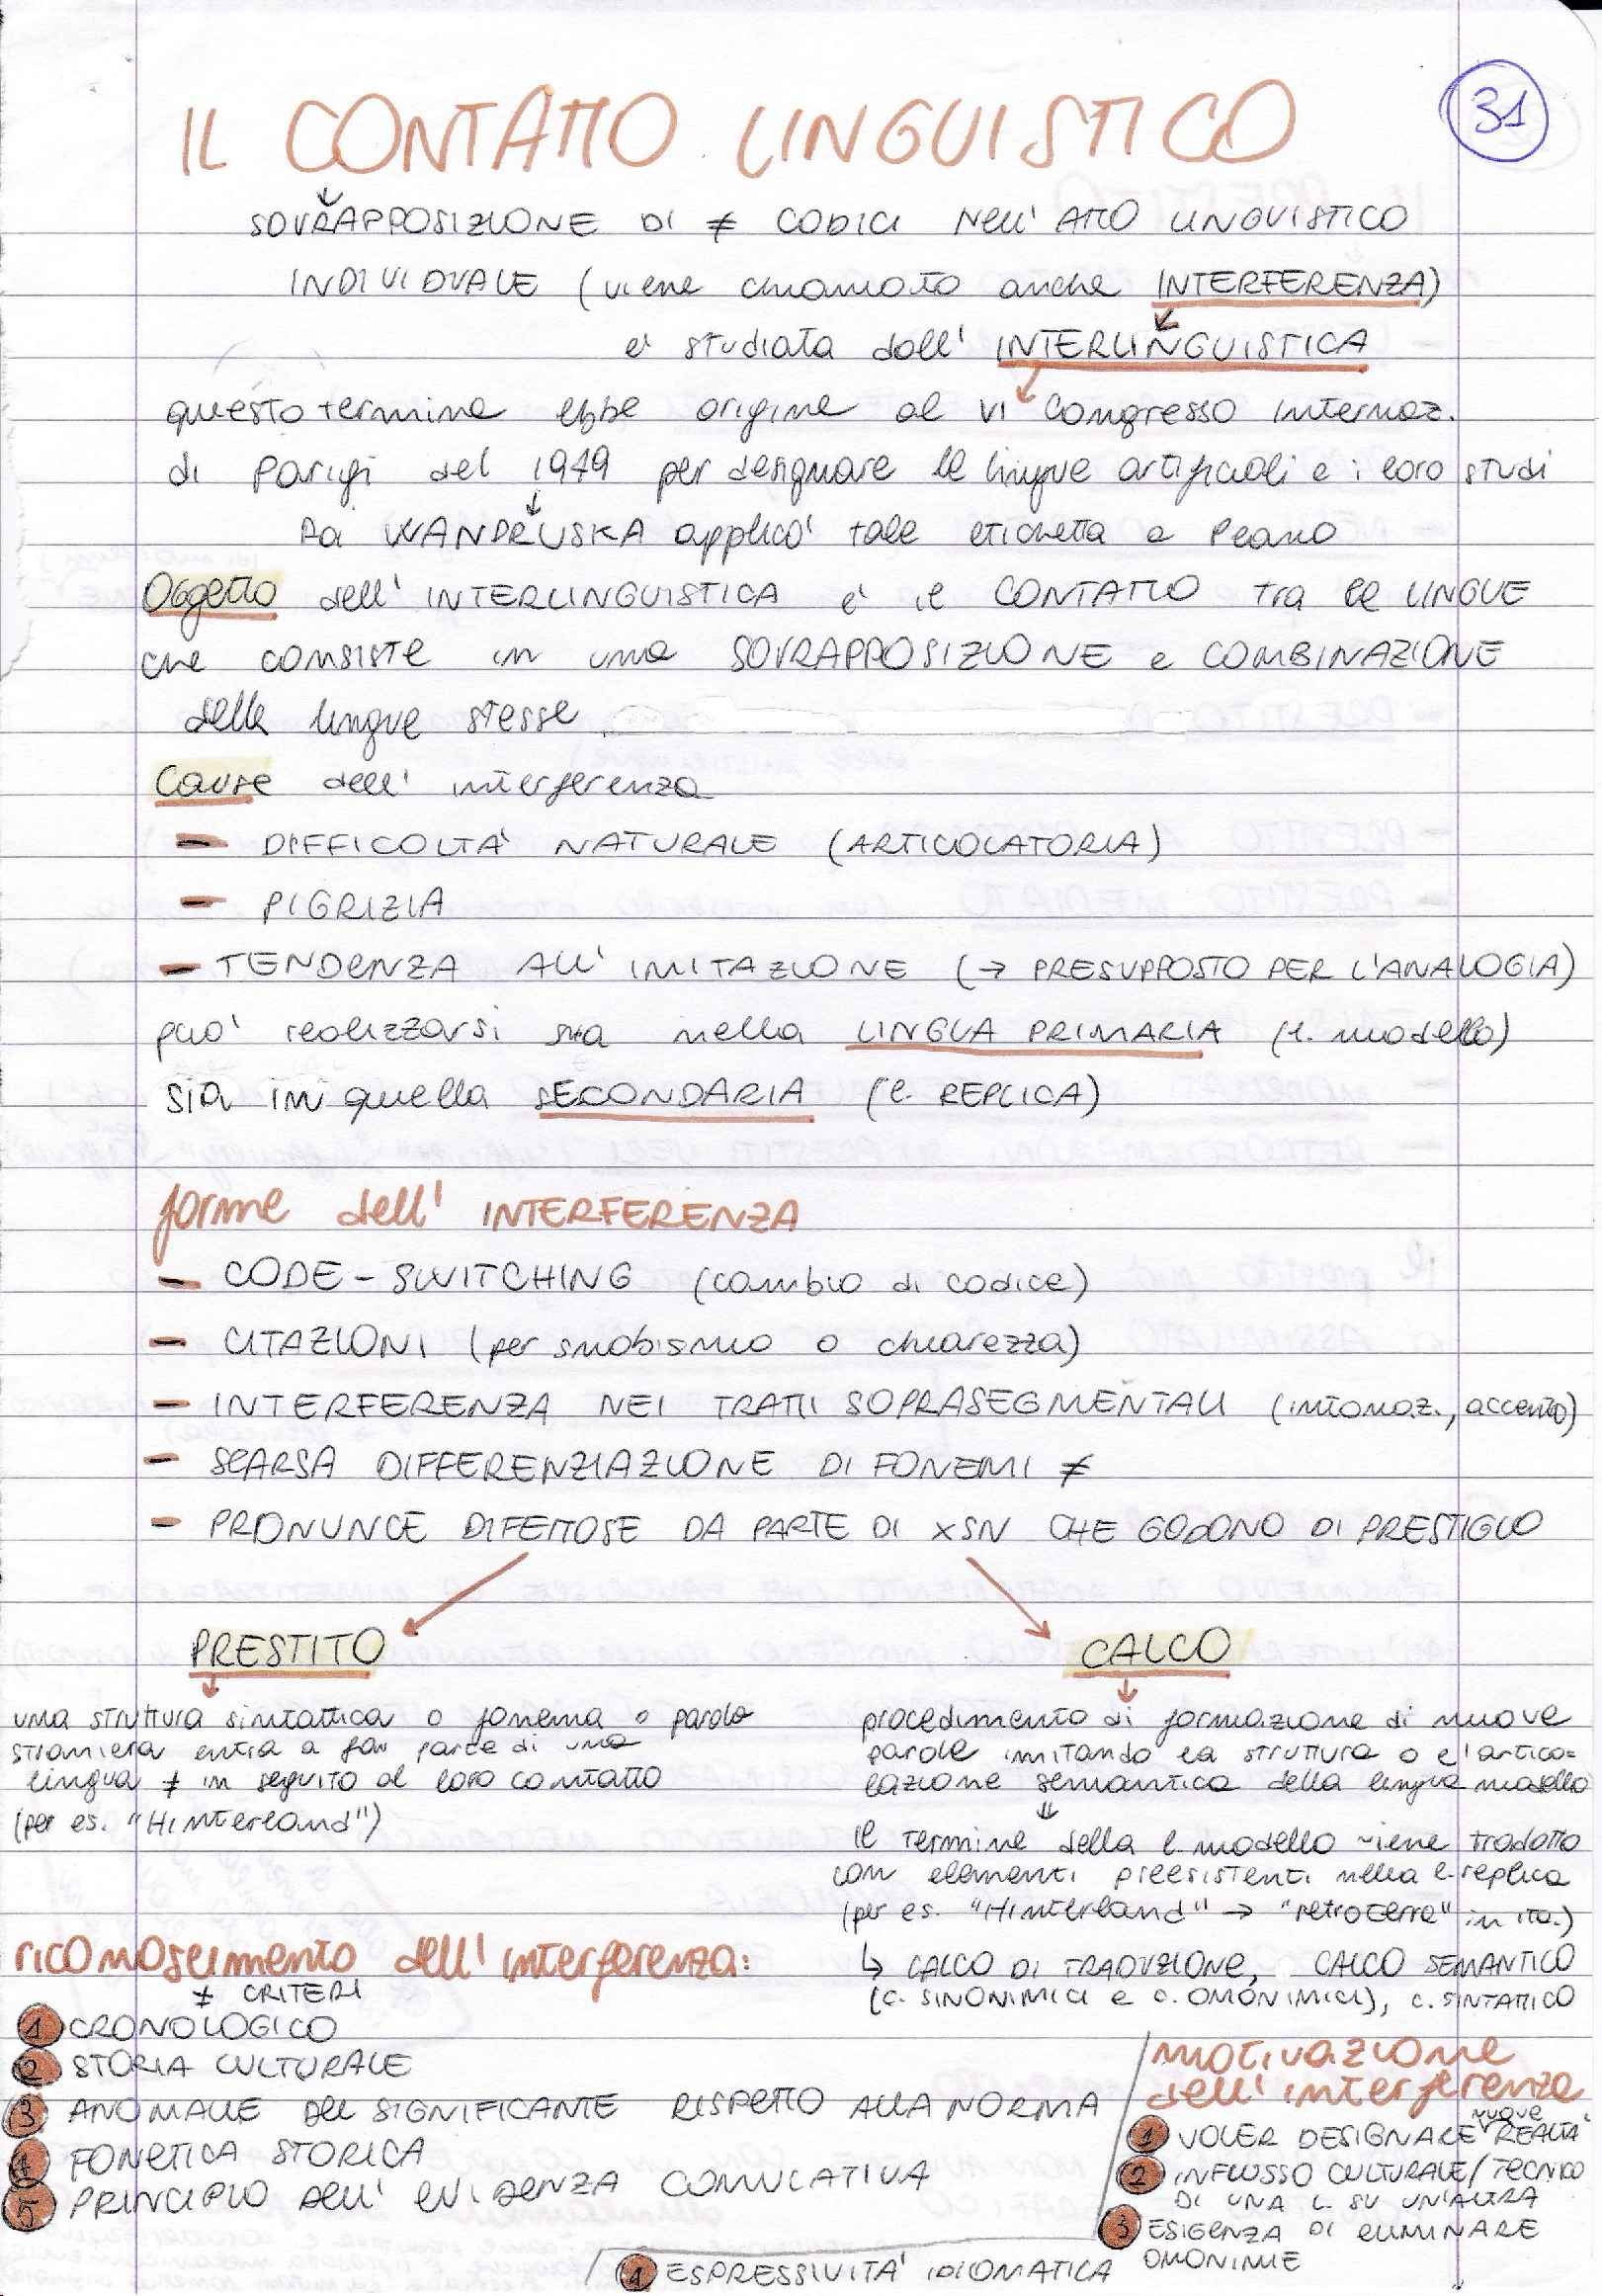 31
IL CONTATTO LINGUISTICO
↓
SOVRAPPOSIZIONE DI ≠ CODICI NELL' ATTO LINGUISTICO
INDIVIDUALE (viene chiamato anche INTERFERENZA)
↓
e' studiata dall' INTERLINGUISTICA
questo termine ebbe origine al VI Congresso internaz.
di Parigi del 1949 per designare le lingue artificiali e i loro studi
↓
Poi WANDRUSKA applico' tale etichetta a Peano
Oggetto dell' INTERLINGUISTICA e' il CONTATTO tra le LINGUE
che consiste in una SOVRAPPOSIZIONE e COMBINAZIONE
delle lingue stesse
Cause dell' interferenza
- DIFFICOLTA' NATURALE (ARTICOLATORIA)
- PIGRIZIA
- TENDENZA ALL' IMITAZIONE (→ PRESUPPOSTO PER L'ANALOGIA)
puo' realizzarsi sia nella LINGUA PRIMARIA (l. modello)
sia in quella SECONDARIA (l. REPLICA)
forme dell' INTERFERENZA
- CODE-SWITCHING (cambio di codice)
- CITAZIONI (per snobismo o chiarezza)
- INTERFERENZA NEI TRATTI SOPRASEGMENTALI (intonaz., accento)
- SCARSA DIFFERENZIAZIONE DI FONEMI ≠
- PRONUNCE DIFETTOSE DA PARTE DI XSN CHE GODONO DI PRESTIGIO
PRESTITO
↓
una struttura sintattica o fonema o parola
straniera entra a far parte di una
lingua ≠ in seguito al loro contatto
(per es. "Hinterland")
CALCO
↓
procedimento di formazione di nuove
parole imitando la struttura o l'artico=
lazione semantica della lingua modello
⇓
il termine della l. modello viene tradotto
con elementi preesistenti nella l. replica
(per es. "Hinterland" → "retroterra" in ita.)
↳ CALCO DI TRADUZIONE, CALCO SEMANTICO
(C. SINONIMICI e C. OMONIMICI), C. SINTATTICO
riconoscimento dell' interferenza:
≠ CRITERI
1 CRONOLOGICO
2 STORIA CULTURALE
3 ANOMALIE DEL SIGNIFICANTE RISPETTO ALLA NORMA
4 FONETICA STORICA
5 PRINCIPIO DELL' EVIDENZA COMULATIVA
motivazione
dell' interferenza
1 VOLER DESIGNARE nuove REALTA'
2 INFLUSSO CULTURALE/TECNICO
DI UNA L. SU UN'ALTRA
3 ESIGENZA DI ELIMINARE
OMONIMIE
4 ESPRESSIVITA' IDIOMATICA